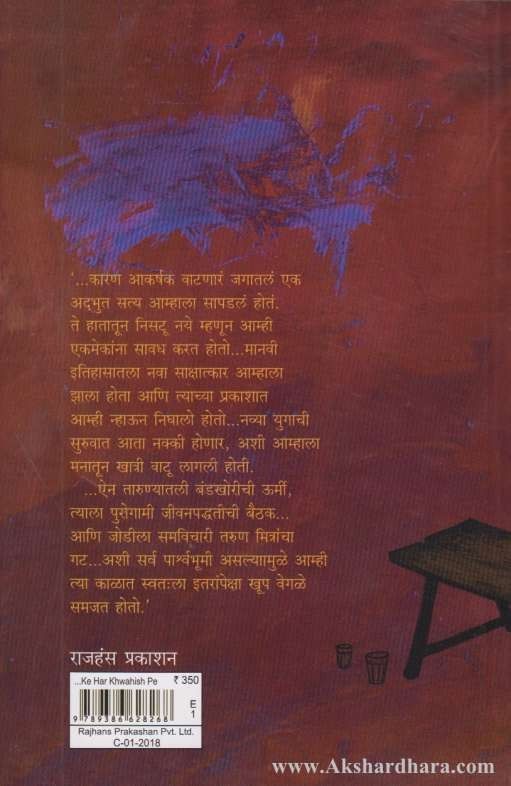 ‘...कारण आकर्षक वाटणारं जगातलं एक
अद्‌भुत सत्य आम्हाला सापडलं होतं.
ते हातातून निसटू नये म्हणून आम्ही
एकमेकांना सावध करत होतो...मानवी
इतिहासातला नवा साक्षात्कार आम्हाला
झाला होता आणि त्याच्या प्रकाशात
आम्ही न्हाऊन निघालो होतो...नव्या युगाची
सुरुवात आता नक्की होणार, अशी आम्हाला
मनातून खात्री वाटू लागली होती.
...ऐन तारुण्यातली बंडखोरीची ऊर्मी,
त्याला पुरोगामी जीवनपद्धतीची बैठक...
आणि जोडीला समविचारी तरुण मित्रांचा
गट...अशी सर्व पार्श्वभूमी असल्यामुळे आम्ही
त्या काळात स्वतःला इतरांपेक्षा खूप वेगळे
समजत होतो.’
राजहंस प्रकाशन
...Ke Har Khwahish Pe ₹ 350
E
1
9 789386 628268
Rajhans Prakashan Pvt. Ltd.
C-01-2018
www.Akshardhara.com